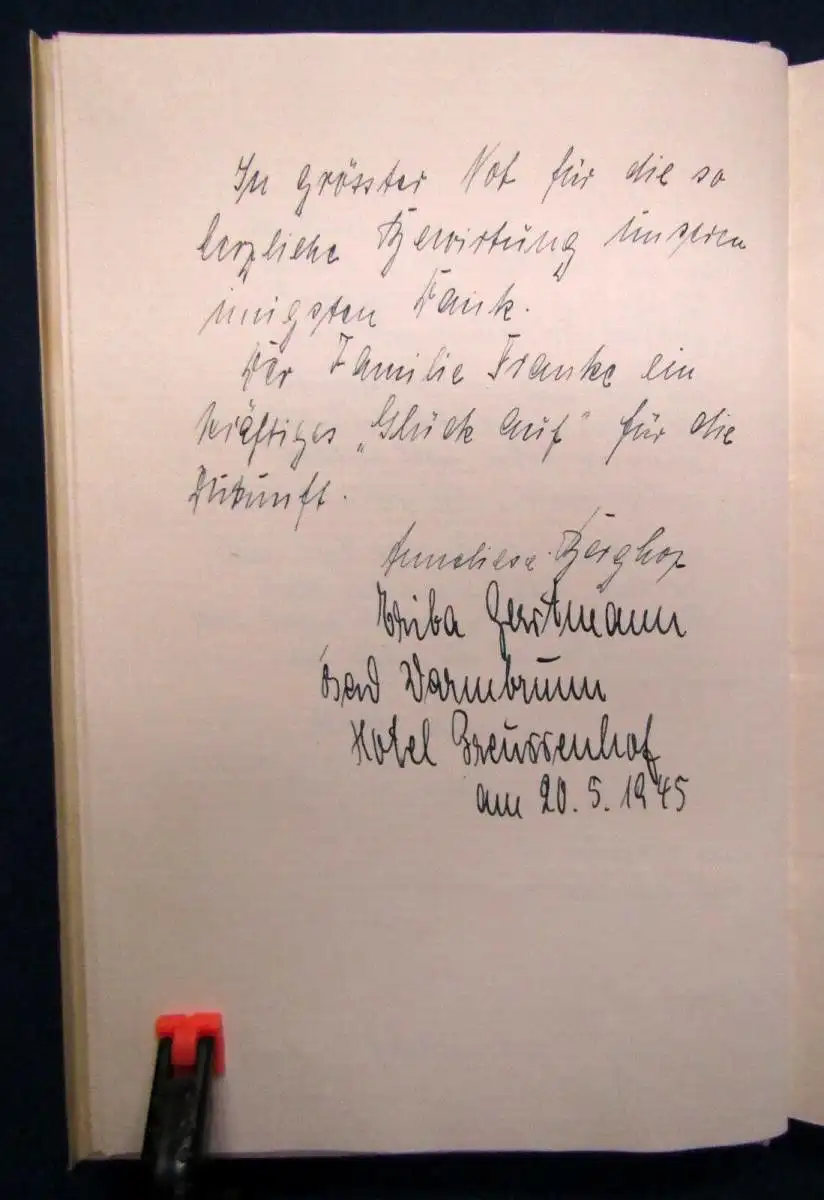 In grösster Not für die so
herzliche Bewirtung unseren
innigsten Dank.
Der Familie Franke ein
kräftiges „Glück auf" für die
Zukunft.
Anneliese Berghof
Gerstmann
Bad Warmbrunn
Hotel Preussenhof
am 20. 5. 1945